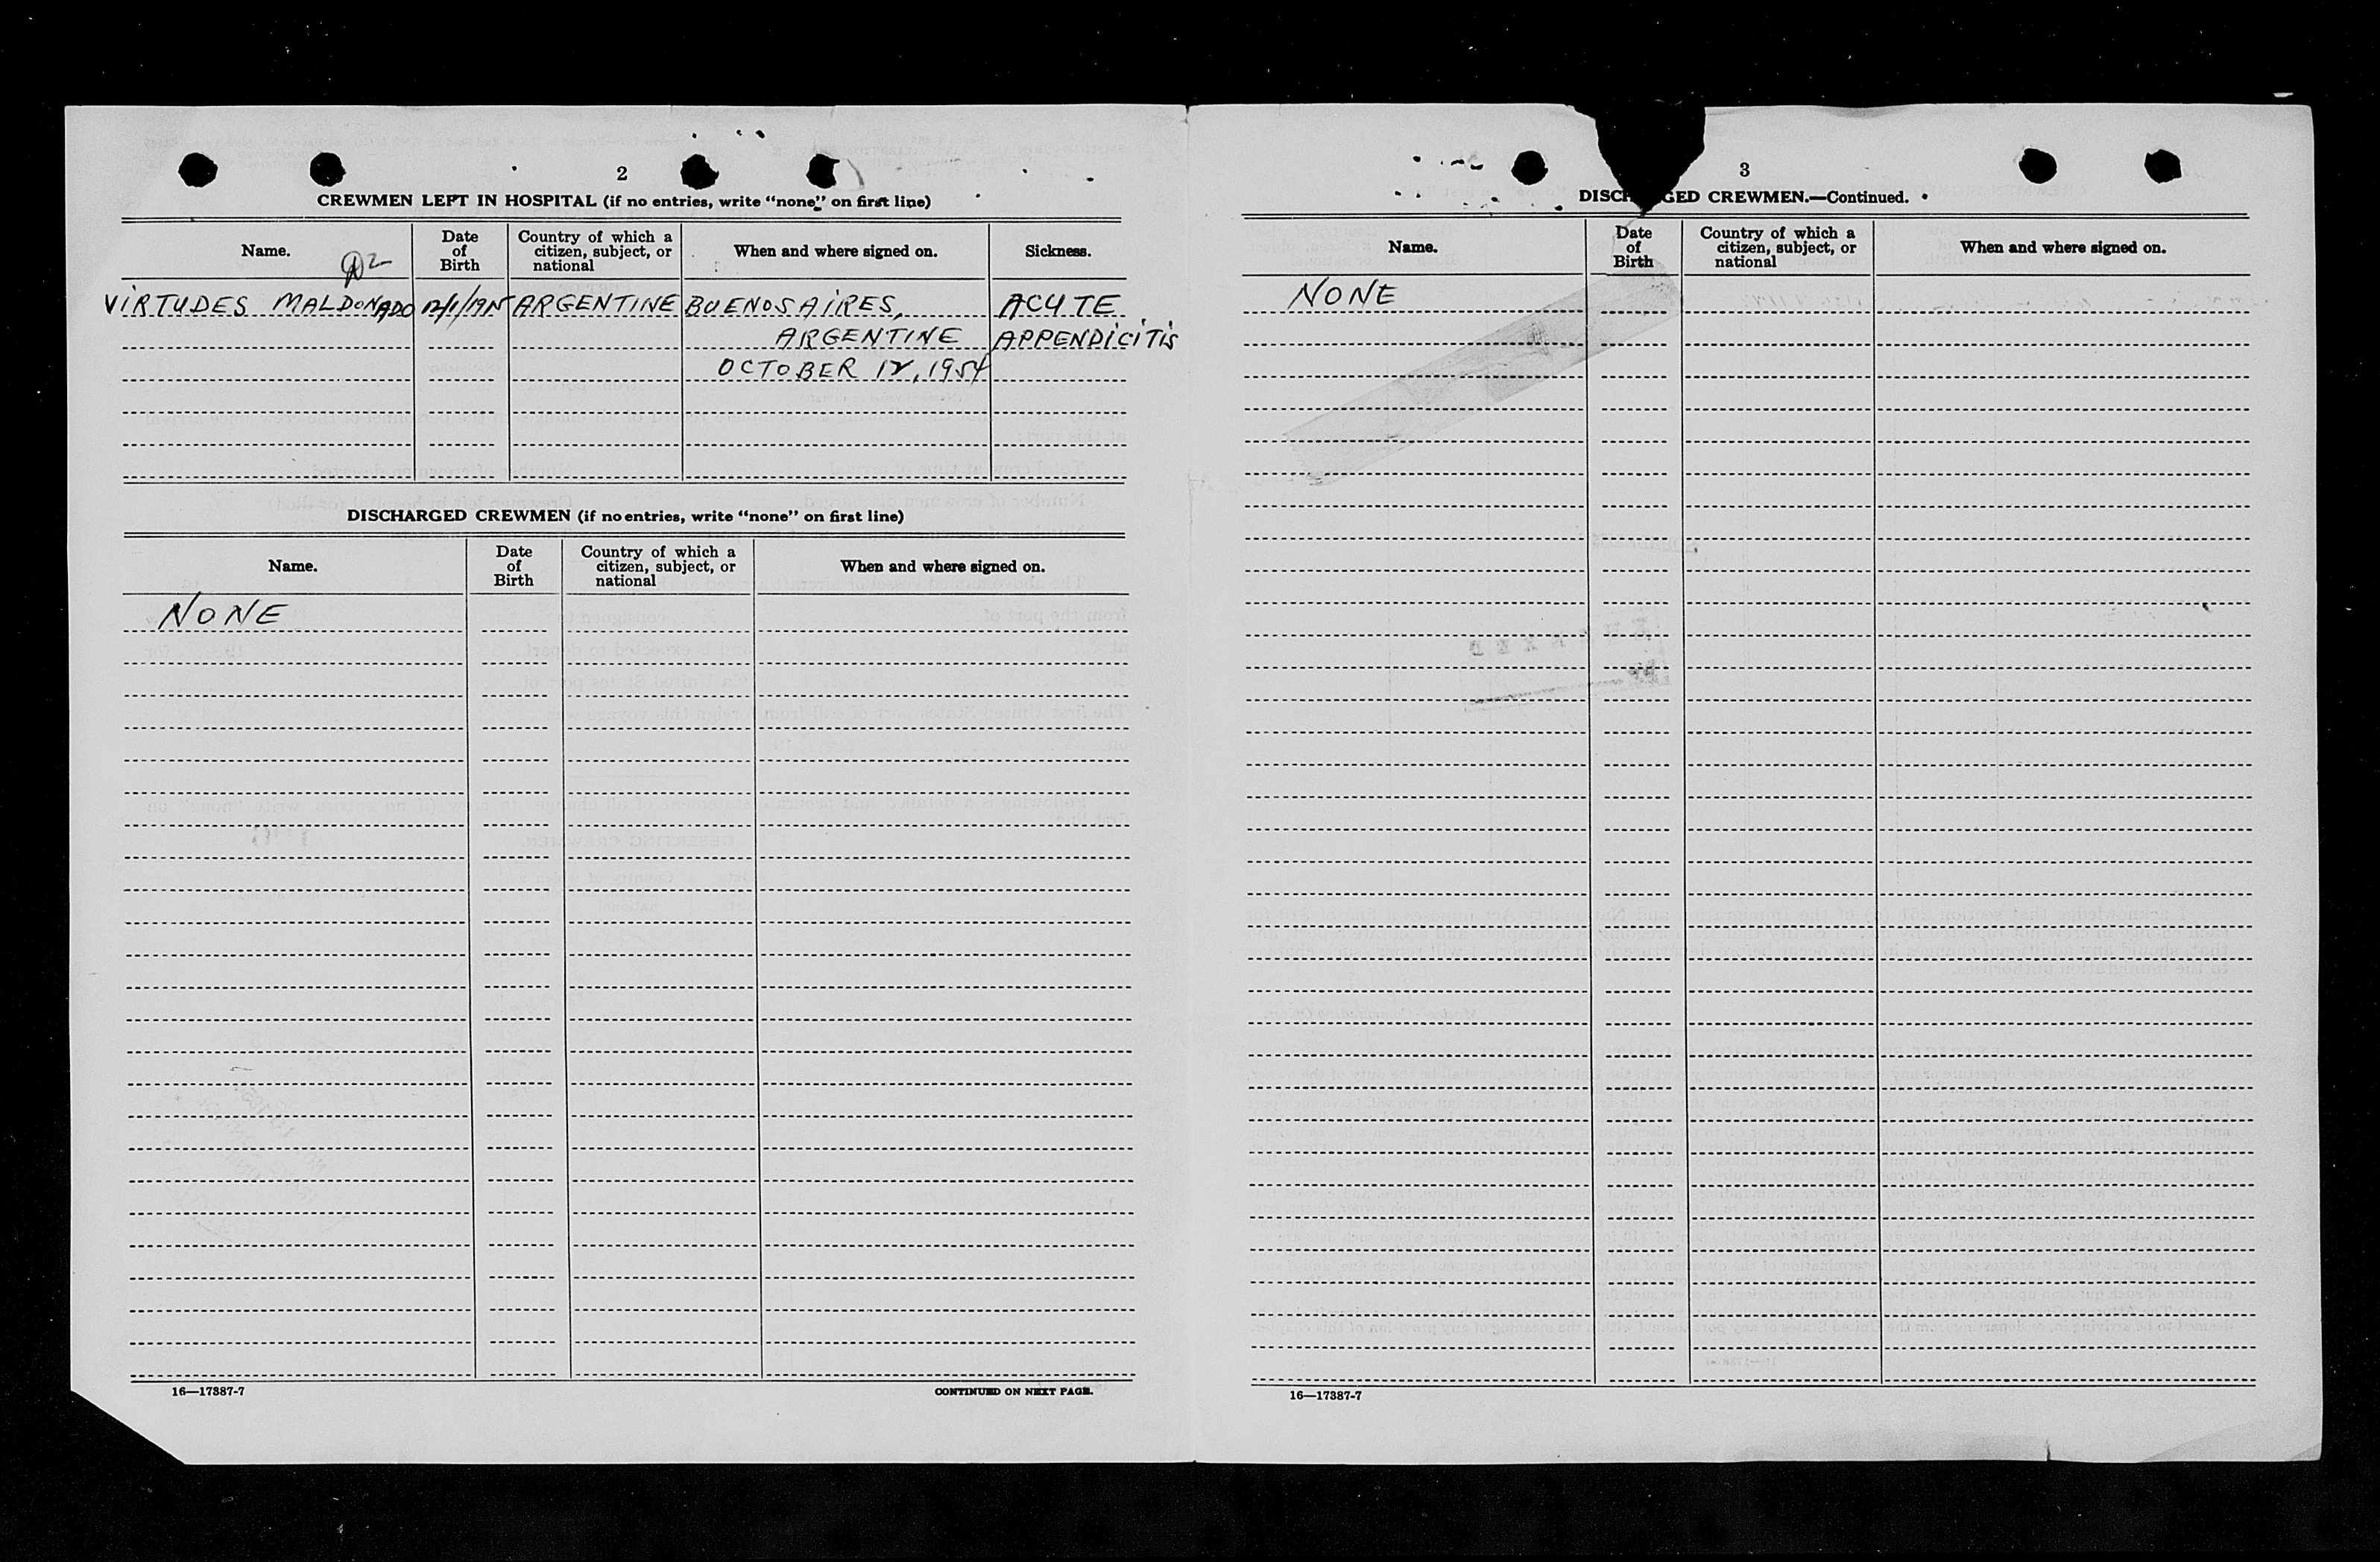 2
CREWMEN LEFT IN HOSPITAL (if no entries, write "none" on first line)
Name.
Date of Birth
Country of which a citizen, subject, or national
When and where signed on.
Sickness.
VIRTUDES MALDONADO ARGENTINE BUENOS AIRES, ACUTE
ARGENTINE APPENDICITIS
OCTOBER 12, 1954
DISCHARGED CREWMEN (if no entries, write "none" on first line)
Name.
Date of Birth
Country of which a citizen, subject, or national
When and where signed on.
NONE
16—17387-7
CONTINUED ON NEXT PAGE.
3
DISCHARGED CREWMEN.—Continued.
Name.
Date of Birth
Country of which a citizen, subject, or national
When and where signed on.
NONE
16—17387-7